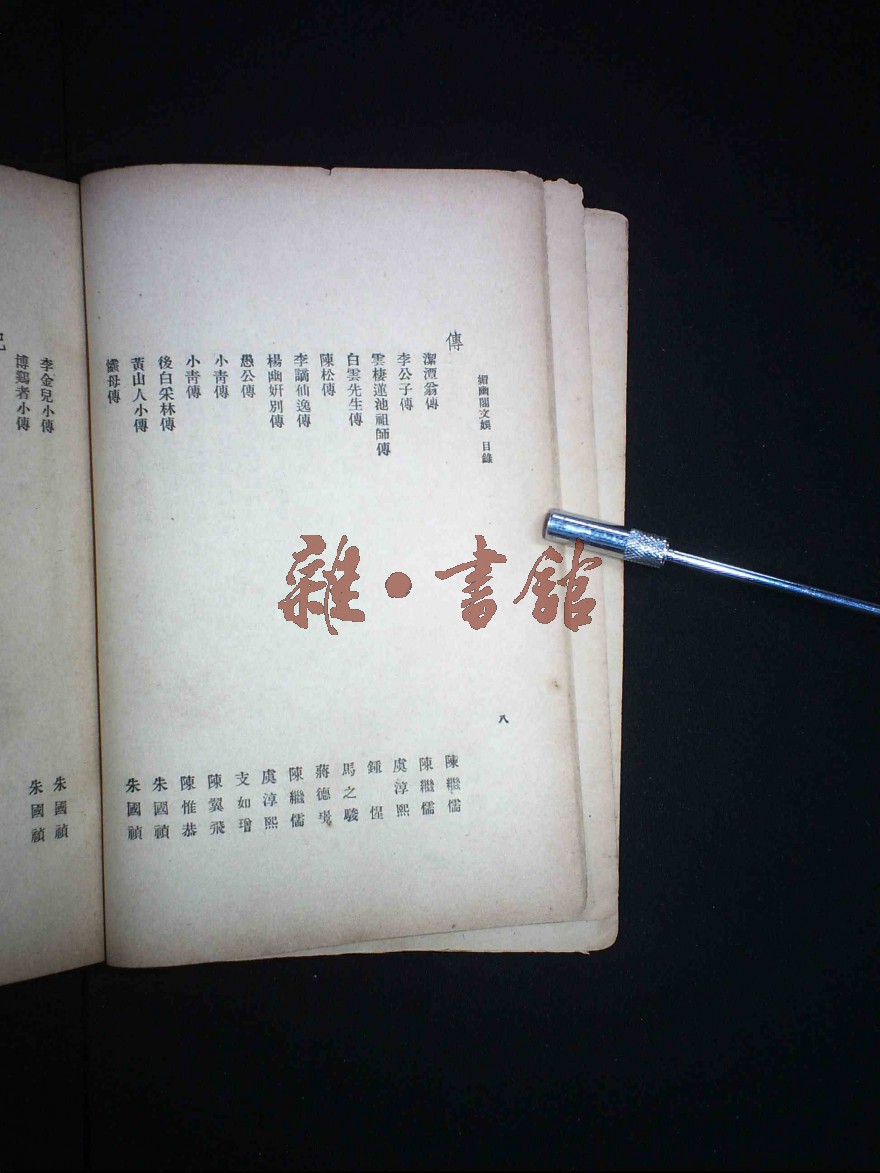 媚幽閣文娛 目錄 八
傳
潔潭翁傳 陳繼儒
李公子傳 陳繼儒
雲棲蓮池祖師傳 虞淳熙
白雲先生傳 鍾惺
陳松傳 馬之駿
李謫仙逸傳 蔣德璟
楊幽妍別傳 陳繼儒
愚公傳 虞淳熙
小青傳 支如璔
小青傳 陳翼飛
後白采林傳 陳惟恭
黃山人小傳 朱國禎
母傳 朱國禎
李金兒小傳 朱國禎
博鷄者小傳 朱國禎
雜·書館